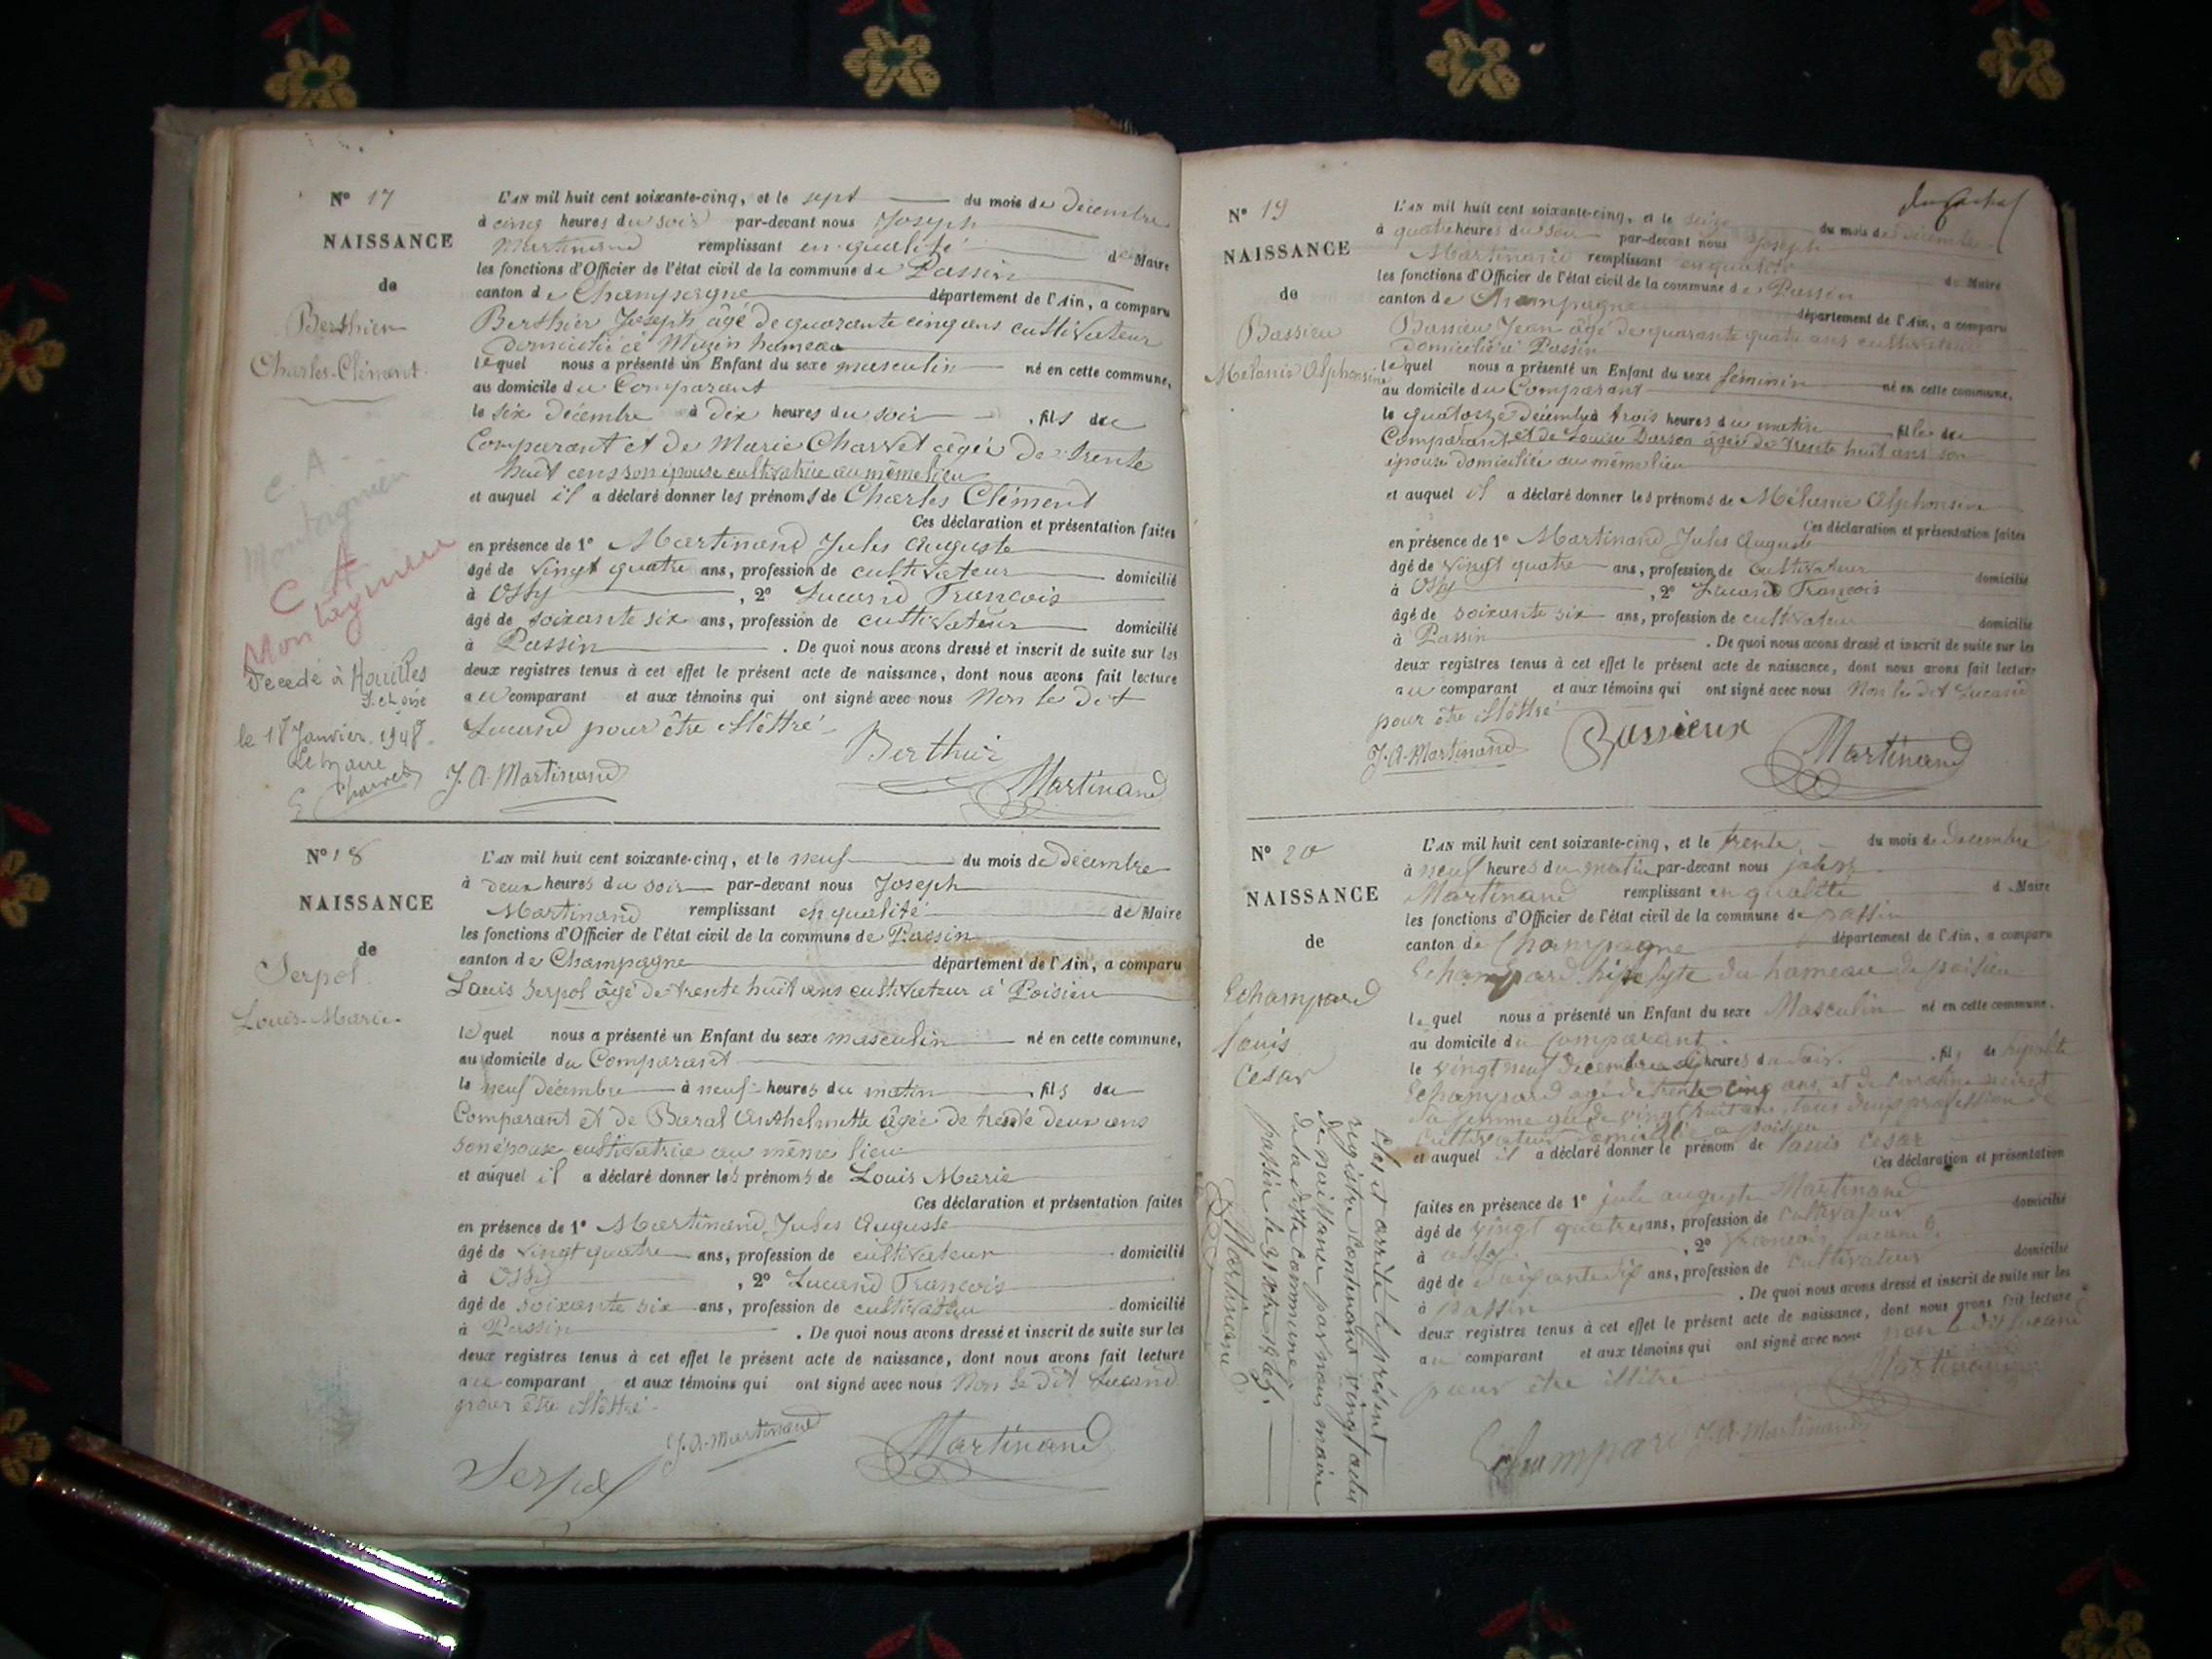 N° 17
NAISSANCE
de
Berthier
Charles-Clément.
C. A.
Montagnieu
C A
Montagnieu
Décédé à Houilles
S. et Oise
le 18 Janvier 1948.
Le Maire
L'AN mil huit cent soixante-cinq, et le sept du mois de Décembre
à cinq heures du soir par-devant nous Joseph
Martinand remplissant en qualité de Maire
les fonctions d'Officier de l'état civil de la commune de Passin
canton de Champagne département de l'Ain, a comparu
Berthier Joseph âgé de quarante cinq ans cultivateur
domicilié à Muzin hameau
lequel nous a présenté un Enfant du sexe masculin né en cette commune,
au domicile du Comparant
le six décembre à dix heures du soir , fils du
Comparant et de Marie Charvet âgée de trente
huit ans son épouse cultivatrice au même lieu
et auquel il a déclaré donner les prénoms de Charles Clément
Ces déclaration et présentation faites
en présence de 1° Martinand Jules Auguste
âgé de vingt quatre ans, profession de cultivateur domicilié
à Ossy , 2° Lucand François
âgé de soixante six ans, profession de cultivateur domicilié
à Passin . De quoi nous avons dressé et inscrit de suite sur les
deux registres tenus à cet effet le présent acte de naissance, dont nous avons fait lecture
au comparant et aux témoins qui ont signé avec nous Non le dit
Lucand pour être illettré
Berthier
J. A. Martinand Martinand
N° 18
NAISSANCE
de
Serpol.
Louis-Marie.
L'AN mil huit cent soixante-cinq, et le neuf du mois de décembre
à deux heures du soir par-devant nous Joseph
Martinand remplissant en qualité de Maire
les fonctions d'Officier de l'état civil de la commune de Passin
canton de Champagne département de l'Ain, a comparu
Louis Serpol âgé de trente huit ans cultivateur à Poisieu
lequel nous a présenté un Enfant du sexe masculin né en cette commune,
au domicile du Comparant
le neuf décembre à neuf heures du matin , fils du
Comparant et de Baral Anthelmette âgée de trente deux ans
son épouse cultivatrice au même lieu
et auquel il a déclaré donner les prénoms de Louis Marie
Ces déclaration et présentation faites
en présence de 1° Martinand Jules Auguste
âgé de vingt quatre ans, profession de cultivateur domicilié
à Ossy , 2° Lucand François
âgé de soixante six ans, profession de cultivateur domicilié
à Passin . De quoi nous avons dressé et inscrit de suite sur les
deux registres tenus à cet effet le présent acte de naissance, dont nous avons fait lecture
au comparant et aux témoins qui ont signé avec nous Non le dit Lucand
pour être illettré.
Serpol J. A. Martinand Martinand
N° 19
NAISSANCE
de
Bassieu
Mélanie Alphonsine
L'AN mil huit cent soixante-cinq, et le seize du mois de décembre
à quatre heures du soir par-devant nous Joseph
Martinand remplissant en qualité de Maire
les fonctions d'Officier de l'état civil de la commune de Passin
canton de Champagne département de l'Ain, a comparu
Bassieu Jean âgé de quarante quatre ans cultivateur
domicilié à Passin
lequel nous a présenté un Enfant du sexe féminin né en cette commune,
au domicile du Comparant
le quatorze décembre à trois heures du matin fille du
Comparant et de Louise âgée de trente huit ans son
épouse domiciliée au même lieu
et auquel il a déclaré donner les prénoms de Mélanie Alphonsine
Ces déclaration et présentation faites
en présence de 1° Martinand Jules Auguste
âgé de vingt quatre ans, profession de cultivateur domicilié
à Ossy , 2° Lucand François
âgé de soixante six ans, profession de cultivateur domicilié
à Passin . De quoi nous avons dressé et inscrit de suite sur les
deux registres tenus à cet effet le présent acte de naissance, dont nous avons fait lecture
au comparant et aux témoins qui ont signé avec nous Non le dit Lucand
pour être illettré
J. A. Martinand Bassieux Martinand
N° 20
NAISSANCE
de
Echampard
Louis
Cesar
L'AN mil huit cent soixante-cinq, et le trente du mois de decembre
à neuf heures du matin par-devant nous
Martinand remplissant en qualite d Maire
les fonctions d'Officier de l'état civil de la commune de passin
canton de Champagne département de l'Ain, a comparu
Echampard hipolyte du hameau de poisieu
lequel nous a présenté un Enfant du sexe Masculin né en cette commune.
au domicile du comparant
le vingt neuf decembre heures du soir. , fils de hipolite
Echampard agé de trente cinq ans, et de
sa femme de vingt huit ans, tous deux profession de
cultivateur domicilié a poisieu
et auquel il a déclaré donner le prénom de Louis Cesar
Ces déclaration et présentation
faites en présence de 1° jule auguste Martinand
âgé de vingt quatre ans, profession de cultivateur domicilié
à ossy , 2° françois Lucand
âgé de soixante six ans, profession de cultivateur domicilié
à passin . De quoi nous avons dressé et inscrit de suite sur les
deux registres tenus à cet effet le présent acte de naissance, dont nous avons fait lecture
au comparant et aux témoins qui ont signé avec nous non le dit Lucand
pour être illitré
Martinand
Echampard J. A. Martinand
Clos et arrêté le présent
registre contenant vingt actes
de naissance par nous maire
de la ditte commune
passin le 31 Xbre 1865.
Martinand